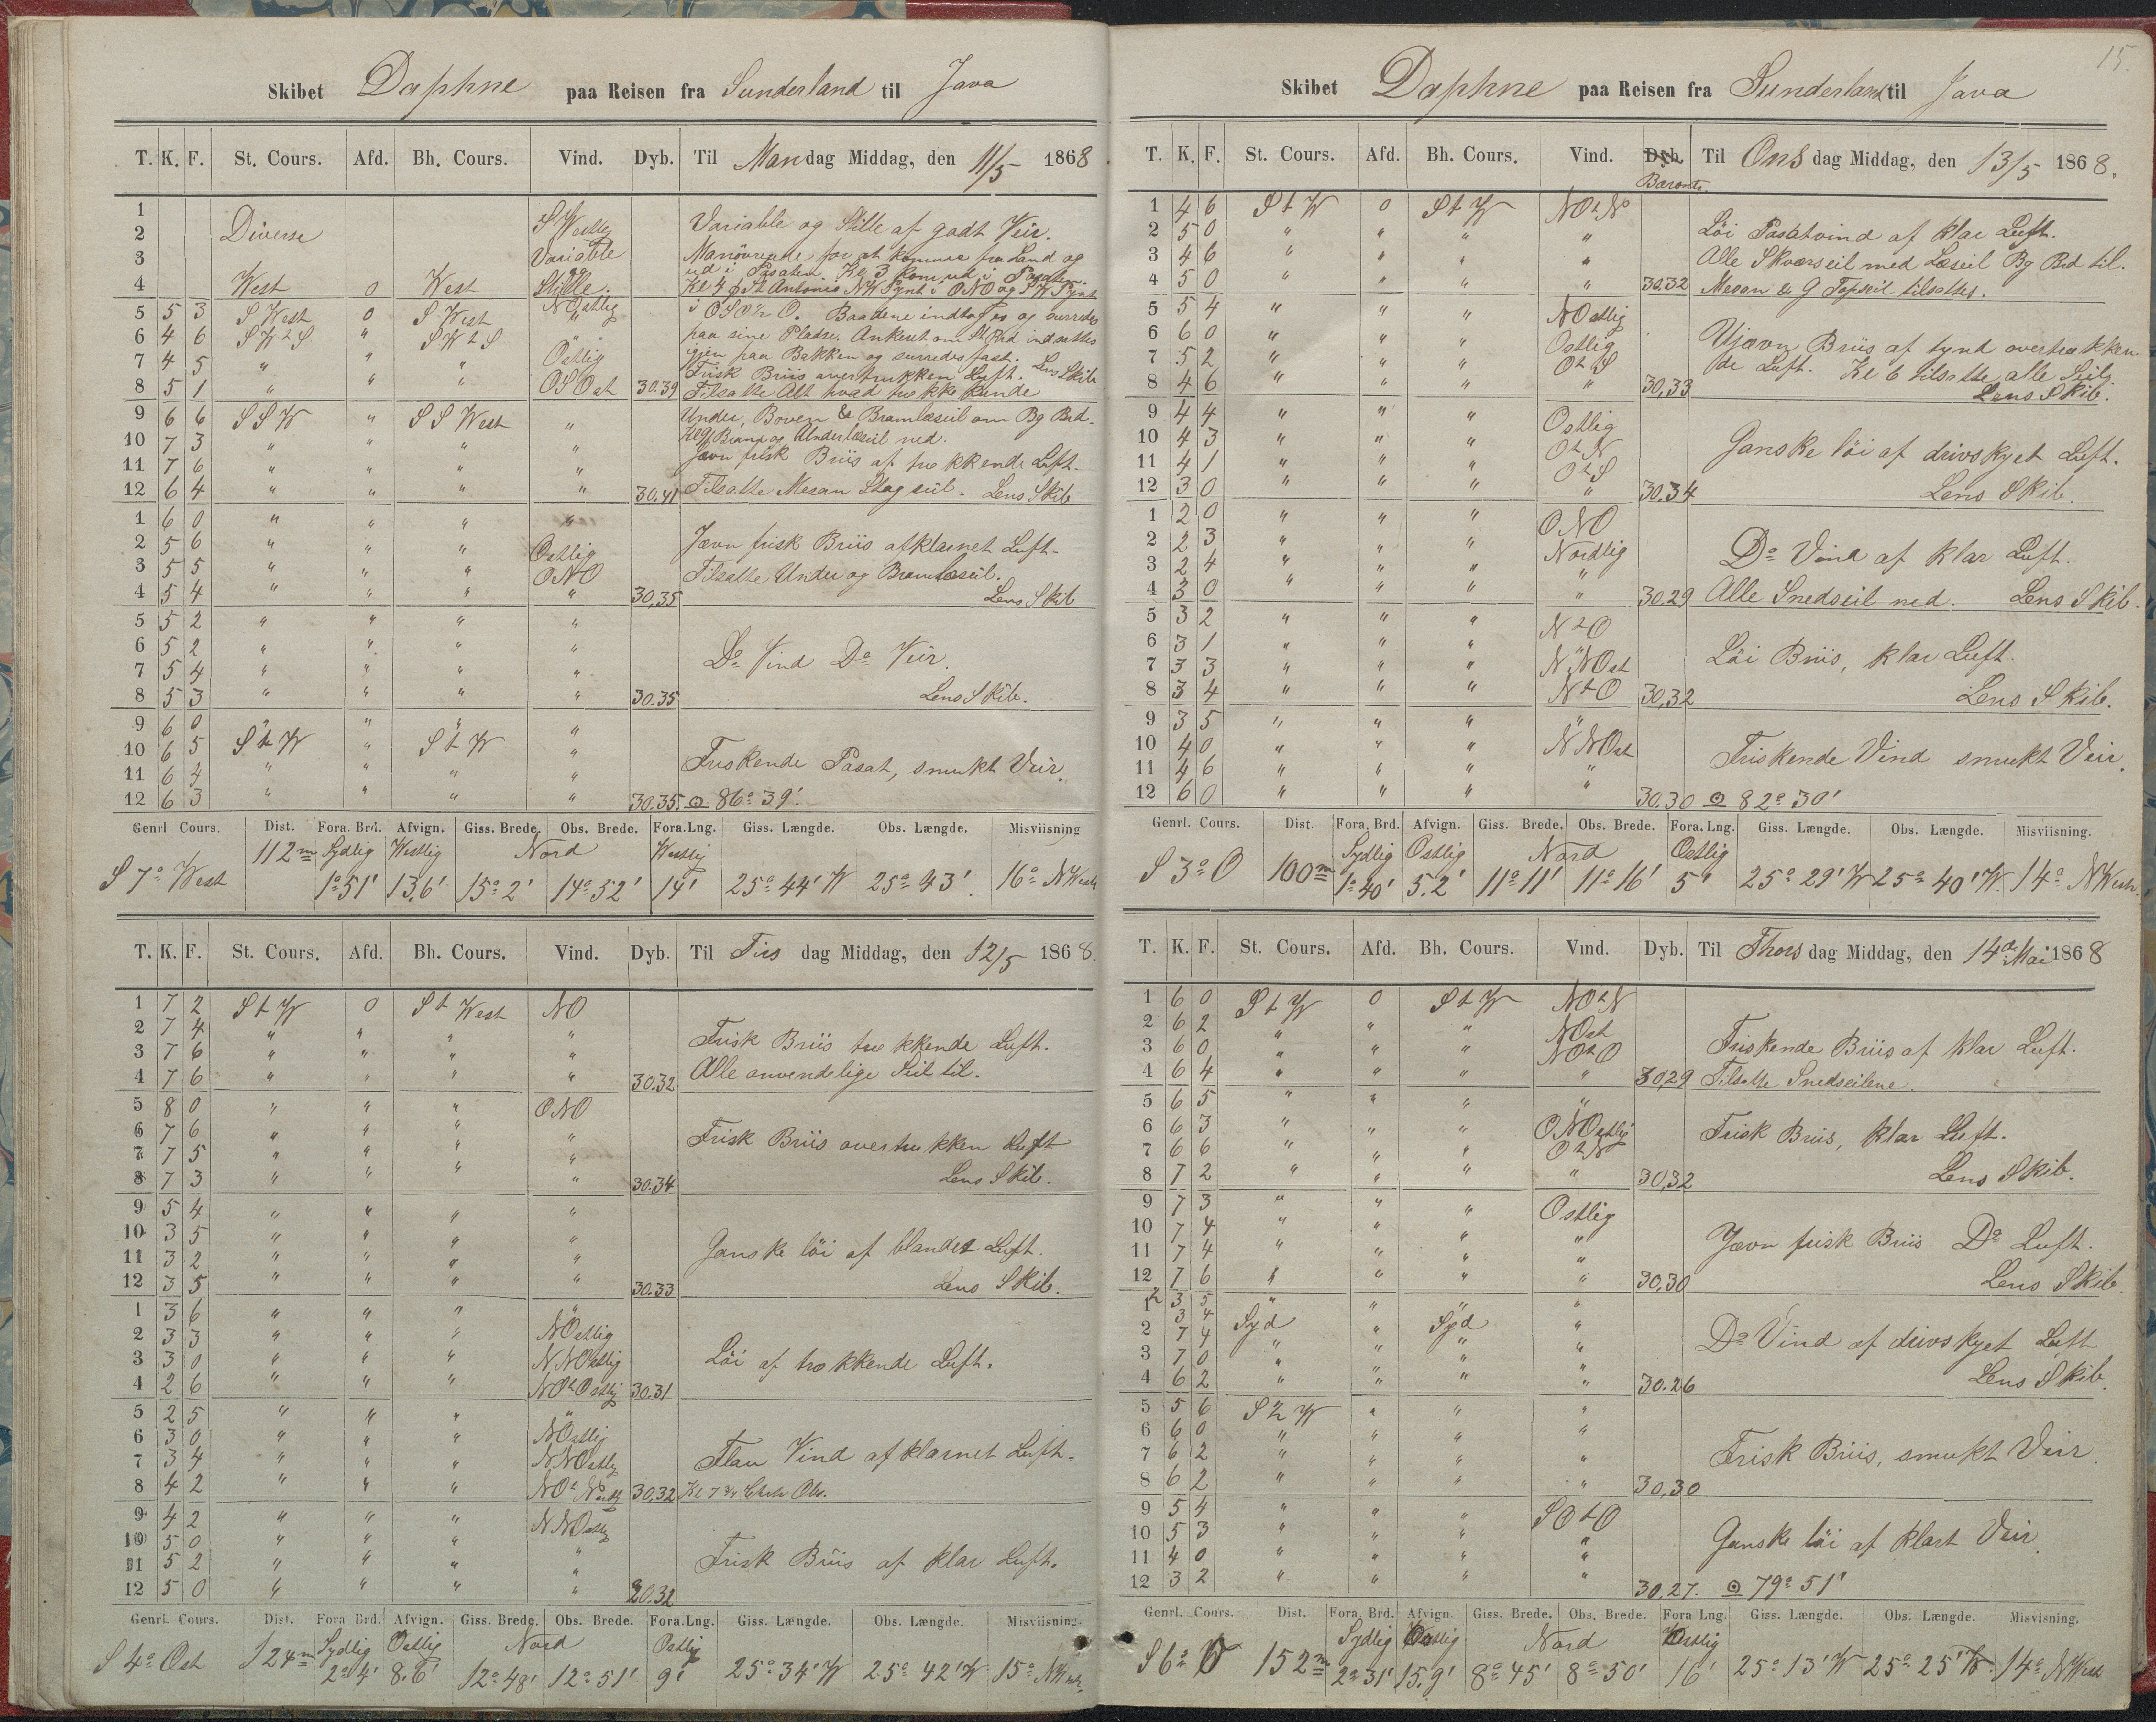 Skibet Daphne paa Reisen fra Sunderland til Java
T. K. F. St. Cours. Afd. Bh. Cours. Vind. Dyb. Til Mandag Middag, den 11/5 1868
1 S Westlig
2 Diverse Variable og Stille af godt Veir.
3 Variable Manövrerede for at komme fra Land og
ud i Pasaten. Kl 3 kom ud i Pasaten.
4 West 0 West Stille. Kl 4 p St Antonio NW Pynt i ONO og SW Pynt
5 5 3 S West 0 S West NOstlig i OSO½O. Baadene indtoges og surredes
6 4 6 SWtS " SWtS " paa sine Pladse. Ankeret om St Bd indsattes
7 4 5 " " " Ostlig igjen paa Bakken og surredes fast. Lens Skib
Frisk Briis overtrukken Luft.
8 5 1 " " " OSOst 30.39 Tilsatte Alt hvad trække kunde
9 6 6 SSW " SS West " Under, Boven & Bramlæseil om Bg Bd.
10 7 3 " " " " Kl 9 Bram og Underlæseil ned.
11 7 6 " " " " Jævn frisk Briis af trækkende Luft.
12 6 4 " " " " 30.41 Tilsatte Mesan Stagseil. Lens Skib
1 6 0 " " " "
2 5 6 " " " Ostlig Jævn frisk Briis afklarnet Luft-
3 5 5 " " " ONO Tilsatte Under og Bramlæseil.
4 5 4 " " " " 30,35 Lens Skib
5 5 2 " " " "
6 5 2 " " " "
7 5 4 " " " " Do Vind Do Veir.
8 5 3 " " " " 30.35 Lens Skib.
9 6 0 " " " "
10 6 5 StW " StW " Friskende Pasat, smukt Veir.
11 6 4 " " " "
12 6 3 " " " " 30.35. ⊙ 86° 39'.
Genrl Cours. Dist. Fora. Brd. Afvign. Giss. Brede. Obs. Brede. Fora. Lng. Giss. Længde. Obs. Længde. Misviisning
112m Sydlig Westlig Nord Westlig
S 7° West 1°51' 13,6' 15°2' 14°52' 14' 25°44' W 25°43'. 16° NWest
T. K. F. St. Cours. Afd. Bh. Cours. Vind. Dyb. Til Tirsdag Middag, den 12/5 1868.
1 7 2 StW 0 St West NO
2 7 4 " " " " Frisk Briis trækkende Luft.
3 7 6 " " " "
4 7 6 " " " " 30.32 Alle anvendelige Seil til.
5 8 0 " " " ONO
6 7 6 " " " " Frisk Briis overtrukken Luft
7 7 5 " " " "
8 7 3 " " " " 30.34 Lens Skib.
9 5 4 " " " "
10 3 5 " " " " Ganske löi af blandet Luft.
11 3 2 " " " "
12 3 5 " " " " 30.33 Lens Skib.
1 3 6 " " " "
2 3 3 " " " NOstlig
3 3 0 " " " NNOstlig Löi af trækkende Luft.
4 2 6 " " " NOtOstlig 30.31
5 2 5 " " " "
6 3 0 " " " NOstlig
7 3 4 " " " NNOstlig Flau Vind afklarnet Luft.
8 4 2 " " " NOtNordlig 30,32 Kl 7¾ Obs.
9 4 2 " " " NNOstlig
10 5 0 " " " "
11 5 2 " " " " Frisk Briis af klar Luft.
12 5 0 " " " " 30.32
Genrl. Cours. Dist. Fora Brd. Afvign. Giss. Brede. Obs. Brede. Fora. Lng. Giss. Længde. Obs. Længde. Misviisning.
Sydlig Ostlig Nord Ostlig
S 4° Ost 124m 2°4' 8.6' 12°48' 12°51' 9' 25°34' W 25°42' W 15° NWest.
15.
Skibet Daphne paa Reisen fra Sunderland til Java
T. K. F. St. Cours. Afd. Bh. Cours. Vind. Dyb. Til Onsdag Middag, den 13/5 1868.
Barontr.
1 4 6 StW 0 StW NOtNo
2 5 0 " " " " Löi Pasatvind af klar Luft.
3 4 6 " " " " Alle Skværseil med Læseil Bg Bd til.
4 5 0 " " " " 30.32 Mesan & G Topseil tilsattes.
5 5 4 " " " NOstlig
6 6 0 " " " Ostlig Ujævn Briis af tynd overtrækken
7 5 2 " " " OtS de Luft. Kl 6 tilsatte alle Seil
8 4 6 " " " " 30,33 Lens Skib.
9 4 4 " " " Ostlig
10 4 3 " " " OtN Ganske löi af drivskyet Luft.
11 4 1 " " " OtS
12 3 0 " " " " 30.34 Lens Skib.
1 2 0 " " " ONO
2 2 3 " " " Nordlig Do Vind af klar Luft.
3 2 4 " " " "
4 3 0 " " " " 30.29 Alle Snedseil ned. Lens Skib.
5 3 2 " " " NtO
6 3 1 " " " " Löi Briis, klar Luft.
7 3 3 " " " NNOst
8 3 4 " " " NtO 30,32 Lens Skib.
9 3 5 " " " "
10 4 0 " " " NNOst Friskende Vind smukt Veir.
11 4 6 " " " "
12 6 0 " " " " 30.30 ⊙ 82° 30'
Genrl. Cours. Dist Fora. Brd. Afvign. Giss. Brede. Obs. Brede. Fora. Lng. Giss. Længde. Obs. Længde. Misviisning.
Sydlig Ostlig Nord Ostlig
S 3° O 100m 1°40' 5.2' 11°11' 11°16' 5' 25°29' W 25°40' W. 14° NWest.
T. K. F. St. Cours. Afd. Bh. Cours. Vind. Dyb. Til Thorsdag Middag, den 14de Mai 1868
1 6 0 StW 0 StW NOtN
2 6 2 " " " NOst
3 6 0 " " " NOtO Friskende Briis af klar Luft.
4 6 4 " " " " 30,29 Tilsatte Snedseilene.
5 6 5 " " " "
6 6 3 " " " ONOstlig Frisk Briis, klar Luft.
7 6 6 " " " OtN
8 7 2 " " " " 30,32 Lens Skib.
9 7 3 " " " Ostlig
10 7 4 " " " " Jævn frisk Briis Do Luft.
11 7 4 " " " "
12 7 6 " " " " 30,30 Lens Skib.
1 ½ 3 5 " " " "
3 4 Syd Syd
2 7 4 " " " " Do Vind af drivskyet Luft
3 7 0 " " " "
4 6 2 " " " " 30.26 Lens Skib.
5 5 6 S½W " " "
6 6 0 " " " "
7 6 2 " " " " Frisk Briis, smukt Veir.
8 6 2 " " " " 30,30
9 5 4 " " " SOtO
10 5 3 " " " " Ganske löi af klart Veir.
11 4 0 " " " "
12 3 2 " " " " 30,27. ⊙ 79° 51'
Genrl. Cours. Dist. Fora. Brd. Afvign. Giss. Brede. Obs. Brede. Fora Lng. Giss. Længde. Obs. Længde. Misvisning.
Sydlig Nord
S 6° 152m 2°31' 15.9' 8°45' 8°50' 16' 25°13' W 25°25' W. 14° NWest